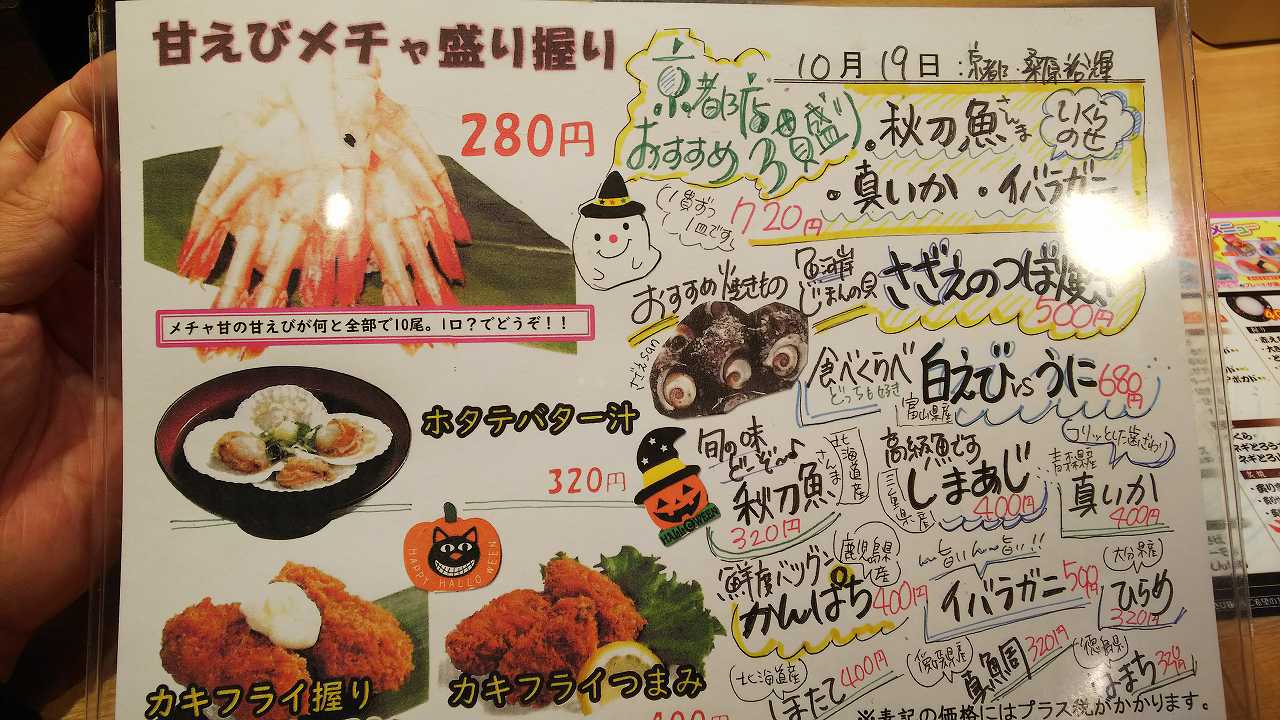 甘えびメチャ盛り握り
280円
メチャ甘の甘えびが何と全部で10尾。1口?でどうぞ!!
ホタテバター汁
320円
HAPPY HALLOWEEN
カキフライ握り
カキフライつまみ
10月19日:京都 桑原裕輝
京都店
おすすめ3貫盛り
・秋刀魚
さんま
いくら
のせ
・真いか ・イバラガニ
1貫ずつ
1皿です
720円
おすすめ焼きもの
魚河岸
じまんの貝
さざえのつぼ焼き
500円
さざえsan
食べくらべ
どっちも好き
白えびvsうに
富山県産
680円
旬の味
どーぞ〜♪
秋刀魚
さんま
北海道産
320円
HALLOWEEN
高級魚です
しまあじ
三重県産
400円
コリッとした歯ざわり
青森県産
真いか
400円
鮮度バツグン
鹿児島県産
かんぱち
400円
〜旨いん〜旨い!!
イバラガニ
500円
(大分県産)
ひらめ
320円
北海道産
ほたて
400円
真鯛
320円
徳島県
はまち
320円
※表記の価格にはプラス税がかかります。
メニュー